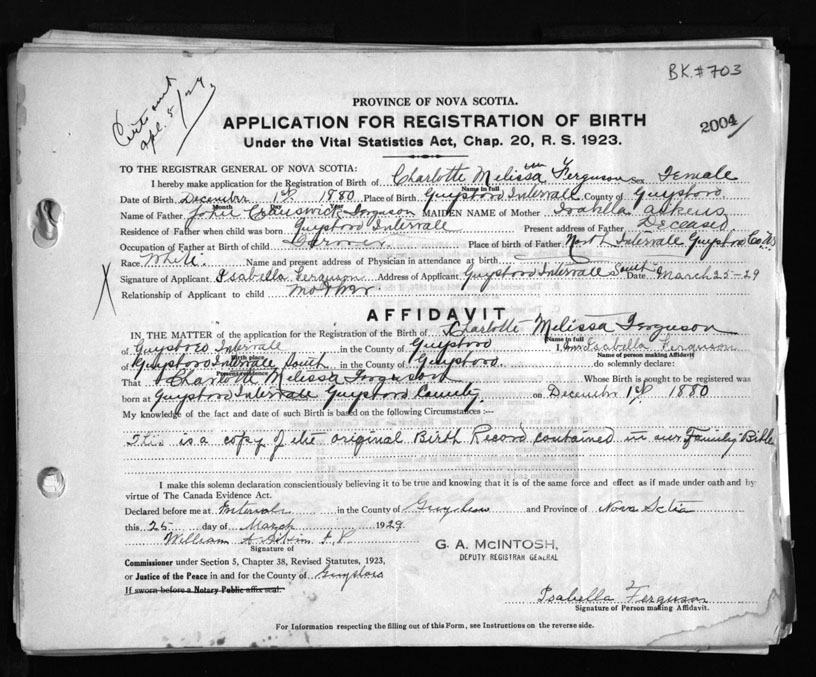 BK.#703
PROVINCE OF NOVA SCOTIA.
APPLICATION FOR REGISTRATION OF BIRTH
2004
Under the Vital Statistics Act, Chap. 20, R. S. 1923.
TO THE REGISTRAR GENERAL OF NOVA SCOTIA:
I hereby make application for the Registration of Birth of Charlotte Melissa Ferguson Sex Female
Name in full
Date of Birth December 1st 1880 Place of Birth Guysboro Intervale County of Guysboro
Month Day Year
Name of Father John Ferguson MAIDEN NAME of Mother Isabella
Residence of Father when child was born Guysboro Intervale Present address of Father Deceased
Occupation of Father at Birth of child Farmer Place of birth of Father North Intervale Guysboro Co NS
Race White. Name and present address of Physician in attendance at birth
Signature of Applicant Isabella Ferguson Address of Applicant Guysboro Intervale South Date March 25-29
Relationship of Applicant to child mother
AFFIDAVIT
IN THE MATTER of the application for the Registration of the Birth of Charlotte Melissa Ferguson
Name in full
of Guysboro Intervale in the County of Guysboro I, Isabella Ferguson
Birth place Name of person making Affidavit
of Guysboro Intervale South in the County of Guysboro. do solemnly declare:
Present residence
That Charlotte Melissa Ferguson Whose Birth is sought to be registered was
born at Guysboro Intervale Guysboro County on December 1st 1880
My knowledge of the fact and date of such Birth is based on the following Circumstances :—
This is a copy of the original Birth Record contained in our Family Bible
I make this solemn declaration conscientiously believing it to be true and knowing that it is of the same force and effect as if made under oath and by
virtue of The Canada Evidence Act.
Declared before me at Intervale in the County of Guysboro and Province of Nova Scotia
this 25 day of March 1929
William A
Signature of
G. A. McINTOSH,
DEPUTY REGISTRAR GENERAL
Commissioner under Section 5, Chapter 38, Revised Statutes, 1923,
or Justice of the Peace in and for the County of Guysboro
If sworn before a Notary Public affix seal.
Isabella Ferguson
Signature of Person making Affidavit.
For Information respecting the filling out of this Form, see Instructions on the reverse side.